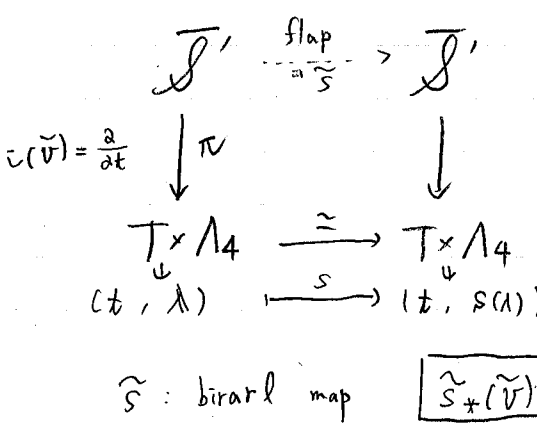 S̄' flap S̄'
= s̃
ĩ(ṽ) = ∂/∂t π
T × Λ₄ ≃ T × Λ₄
(t, λ) s (t, s(λ))
s̃ : birarl map s̃*(ṽ)